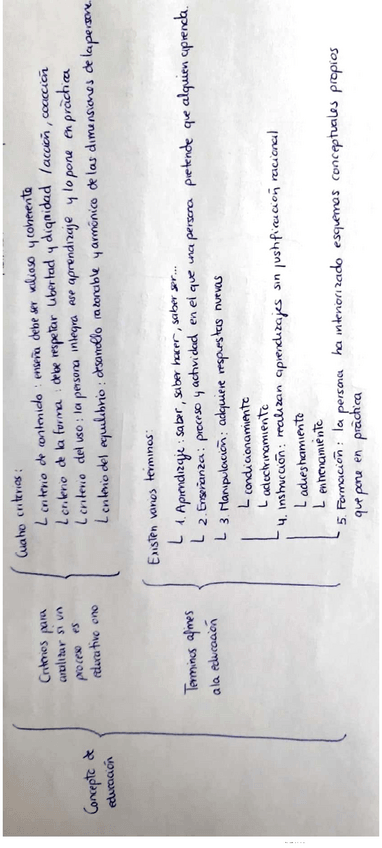 Concepto de
educación
Criterios para
analizar si un
proceso es
educativo o no
Cuatro criterios:
criterio de contenido: enseña debe ser valioso y coherente
criterio de la forma: debe respetar libertad y dignidad / acción, coacción
criterio del uso: la persona integra ese aprendizaje y lo pone en práctica
criterio del equilibrio: desarrollo razonable y armónico de las dimensiones de la persona
Términos afines
a la educación
Existen varios términos:
1. Aprendizaje: saber, saber hacer, saber ser...
2. Enseñanza: proceso y actividad en el que una persona pretende que alguien aprenda.
3. Manipulación: adquiere respuestas nuevas
condicionamiento
adoctrinamiento
4. Instrucción: realizan aprendizajes sin justificación racional
adiestramiento
entrenamiento
5. Formación: la persona ha interiorizado esquemas conceptuales propios
que pone en práctica